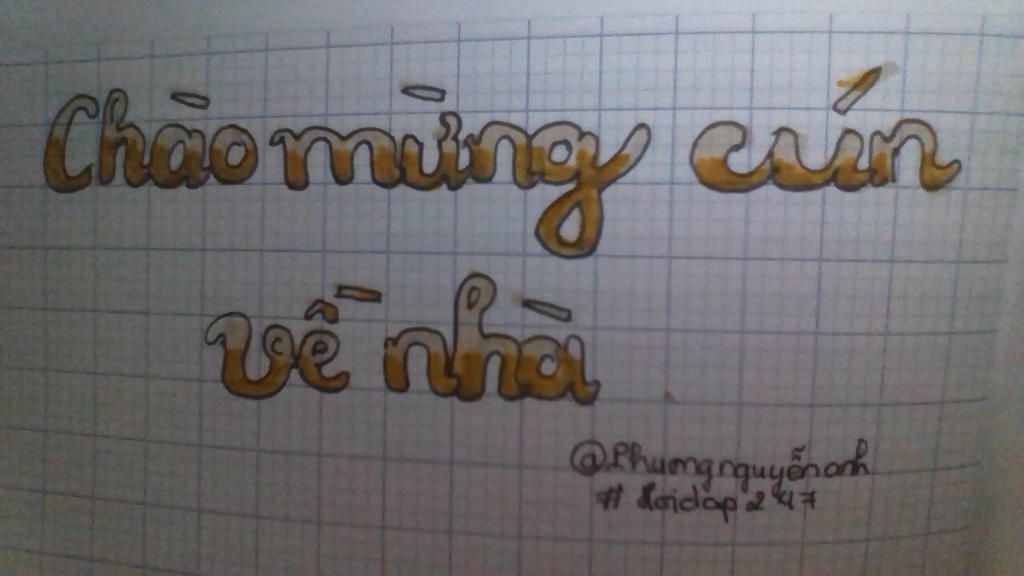 Chào mừng cún
về nhà
@Phuongnguyễnanh
# Hoidap247